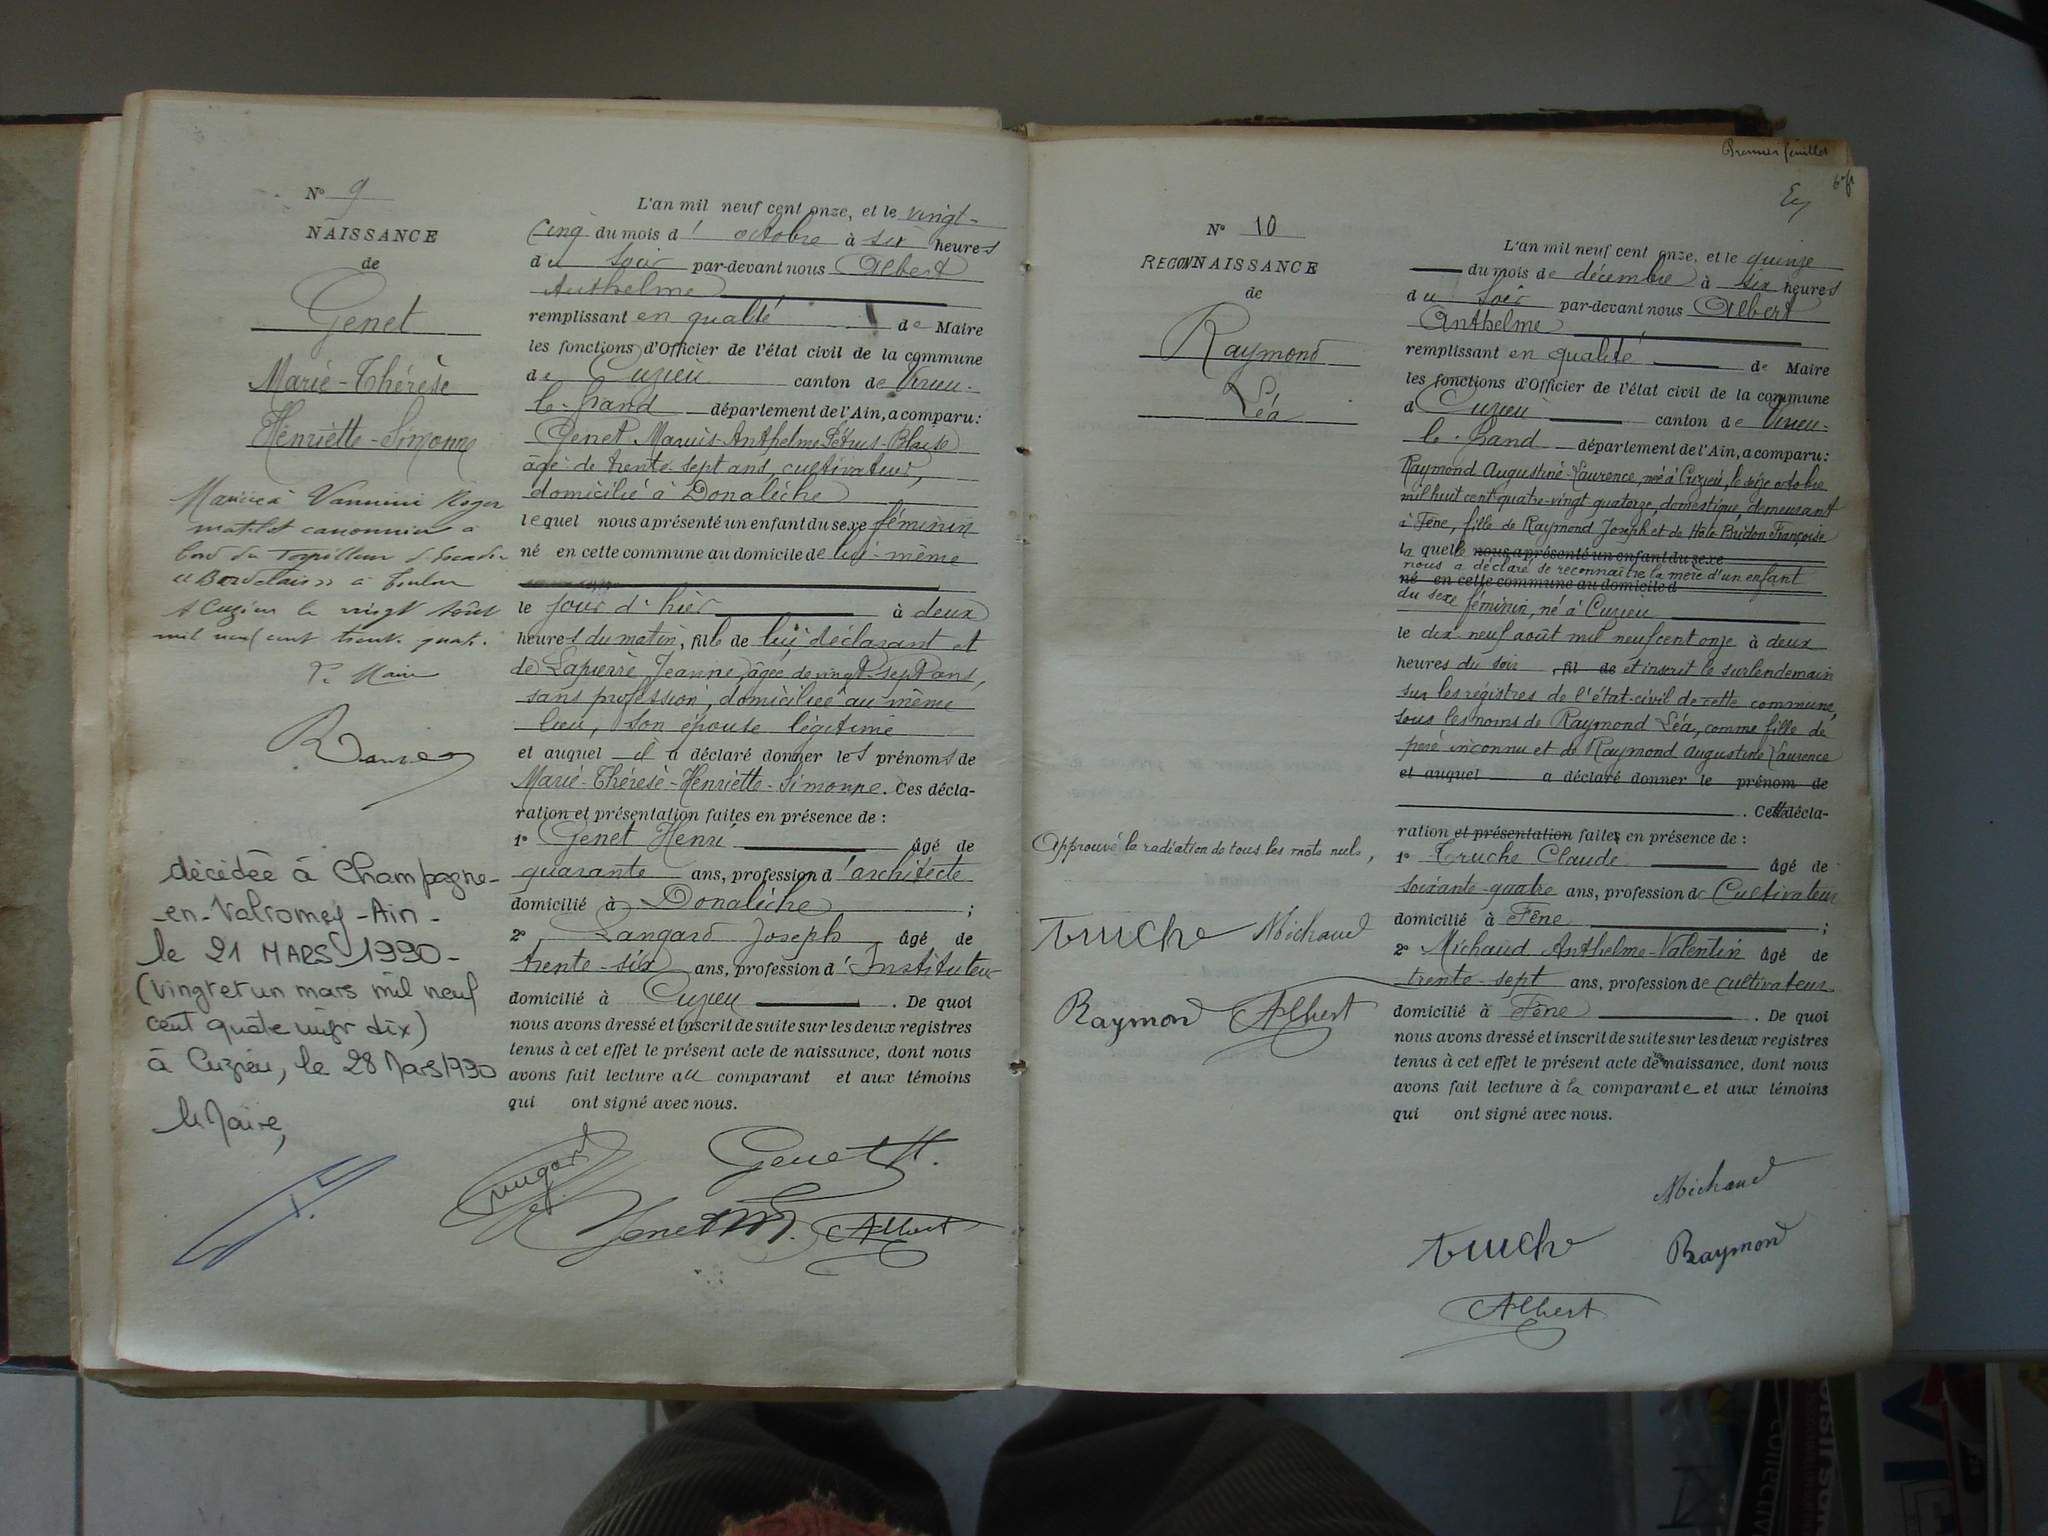 N° 9
NAISSANCE
de
Genet
Marie-Thérèse
Henriette-Simonne
Mariée à Vannini Roger
matelot canonnier à
bord du Torpilleur d'Escadre
"Bordelais" à Toulon
A Cuzieu le vingt août
mil neuf cent trente quatre.
Le Maire
décédée à Champagne-
-en-Valromey-Ain-
le 21 MARS 1990-
(vingt et un mars mil neuf
cent quatre vingt dix)
à Cuzieu, le 28 Mars 1990
le Maire,
L'an mil neuf cent onze, et le vingt-
cinq du mois d'octobre à six heures
du soir par-devant nous Albert
Anthelme
remplissant en qualité de Maire
les fonctions d'Officier de l'état civil de la commune
de Cuzieu canton de Virieu-
le-Grand département de l'Ain, a comparu:
Genet Marius-Anthelme-Pétrus-Blaise
âgé de trente-sept ans, cultivateur,
domicilié à Donalèche
lequel nous a présenté un enfant du sexe féminin
né en cette commune au domicile de lui-même
le jour d'hier à deux
heures du matin, fille de lui déclarant et
de Lapierre Jeanne, âgée de vingt-sept ans,
sans profession, domiciliée au même
lieu, son épouse légitime
et auquel il a déclaré donner les prénoms de
Marie-Thérèse-Henriette-Simonne. Ces décla-
ration et présentation faites en présence de :
1° Genet Henri âgé de
quarante ans, profession d'architecte
domicilié à Donalèche ;
2° Langard Joseph âgé de
trente-six ans, profession d'Instituteur
domicilié à Cuzieu. De quoi
nous avons dressé et inscrit de suite sur les deux registres
tenus à cet effet le présent acte de naissance, dont nous
avons fait lecture au comparant et aux témoins
qui ont signé avec nous.
Langard Genet H.
Genet M. Albert
Premier feuillet
N° 10
RECONNAISSANCE
de
Raymond
Léa
Approuvé la radiation de tous les mots nuls,
truche Michaud
Raymond Albert
L'an mil neuf cent onze, et le quinze
du mois de décembre à six heures
du soir par-devant nous Albert
Anthelme
remplissant en qualité de Maire
les fonctions d'Officier de l'état civil de la commune
d Cuzieu canton de Virieu-
le-Grand département de l'Ain, a comparu:
Raymond Augustine-Laurence, née à Cuzieu, le seize octobre
mil huit cent quatre-vingt quatorze, domestique, demeurant
à Fêne, fille de Raymond Joseph et de Bridon Françoise
la quelle nous a présenté un enfant du sexe
nous a déclaré se reconnaître la mère d'un enfant
né en cette commune au domicile d
du sexe féminin, né à Cuzieu
le dix neuf août mil neuf cent onze à deux
heures du soir, fil de et inscrit le surlendemain
sur les registres de l'état-civil de cette commune,
sous les noms de Raymond Léa, comme fille de
père inconnu et de Raymond Augustine Laurence
et auquel a déclaré donner le prénom de
. Cette décla-
ration et présentation faites en présence de :
1° Truche Claude âgé de
soixante-quatre ans, profession de Cultivateur
domicilié à Fêne ;
2° Michaud Anthelme-Valentin âgé de
trente-sept ans, profession de cultivateur
domicilié à Fêne. De quoi
nous avons dressé et inscrit de suite sur les deux registres
tenus à cet effet le présent acte de naissance, dont nous
avons fait lecture à la comparante et aux témoins
qui ont signé avec nous.
Michaud
truche Raymond
Albert